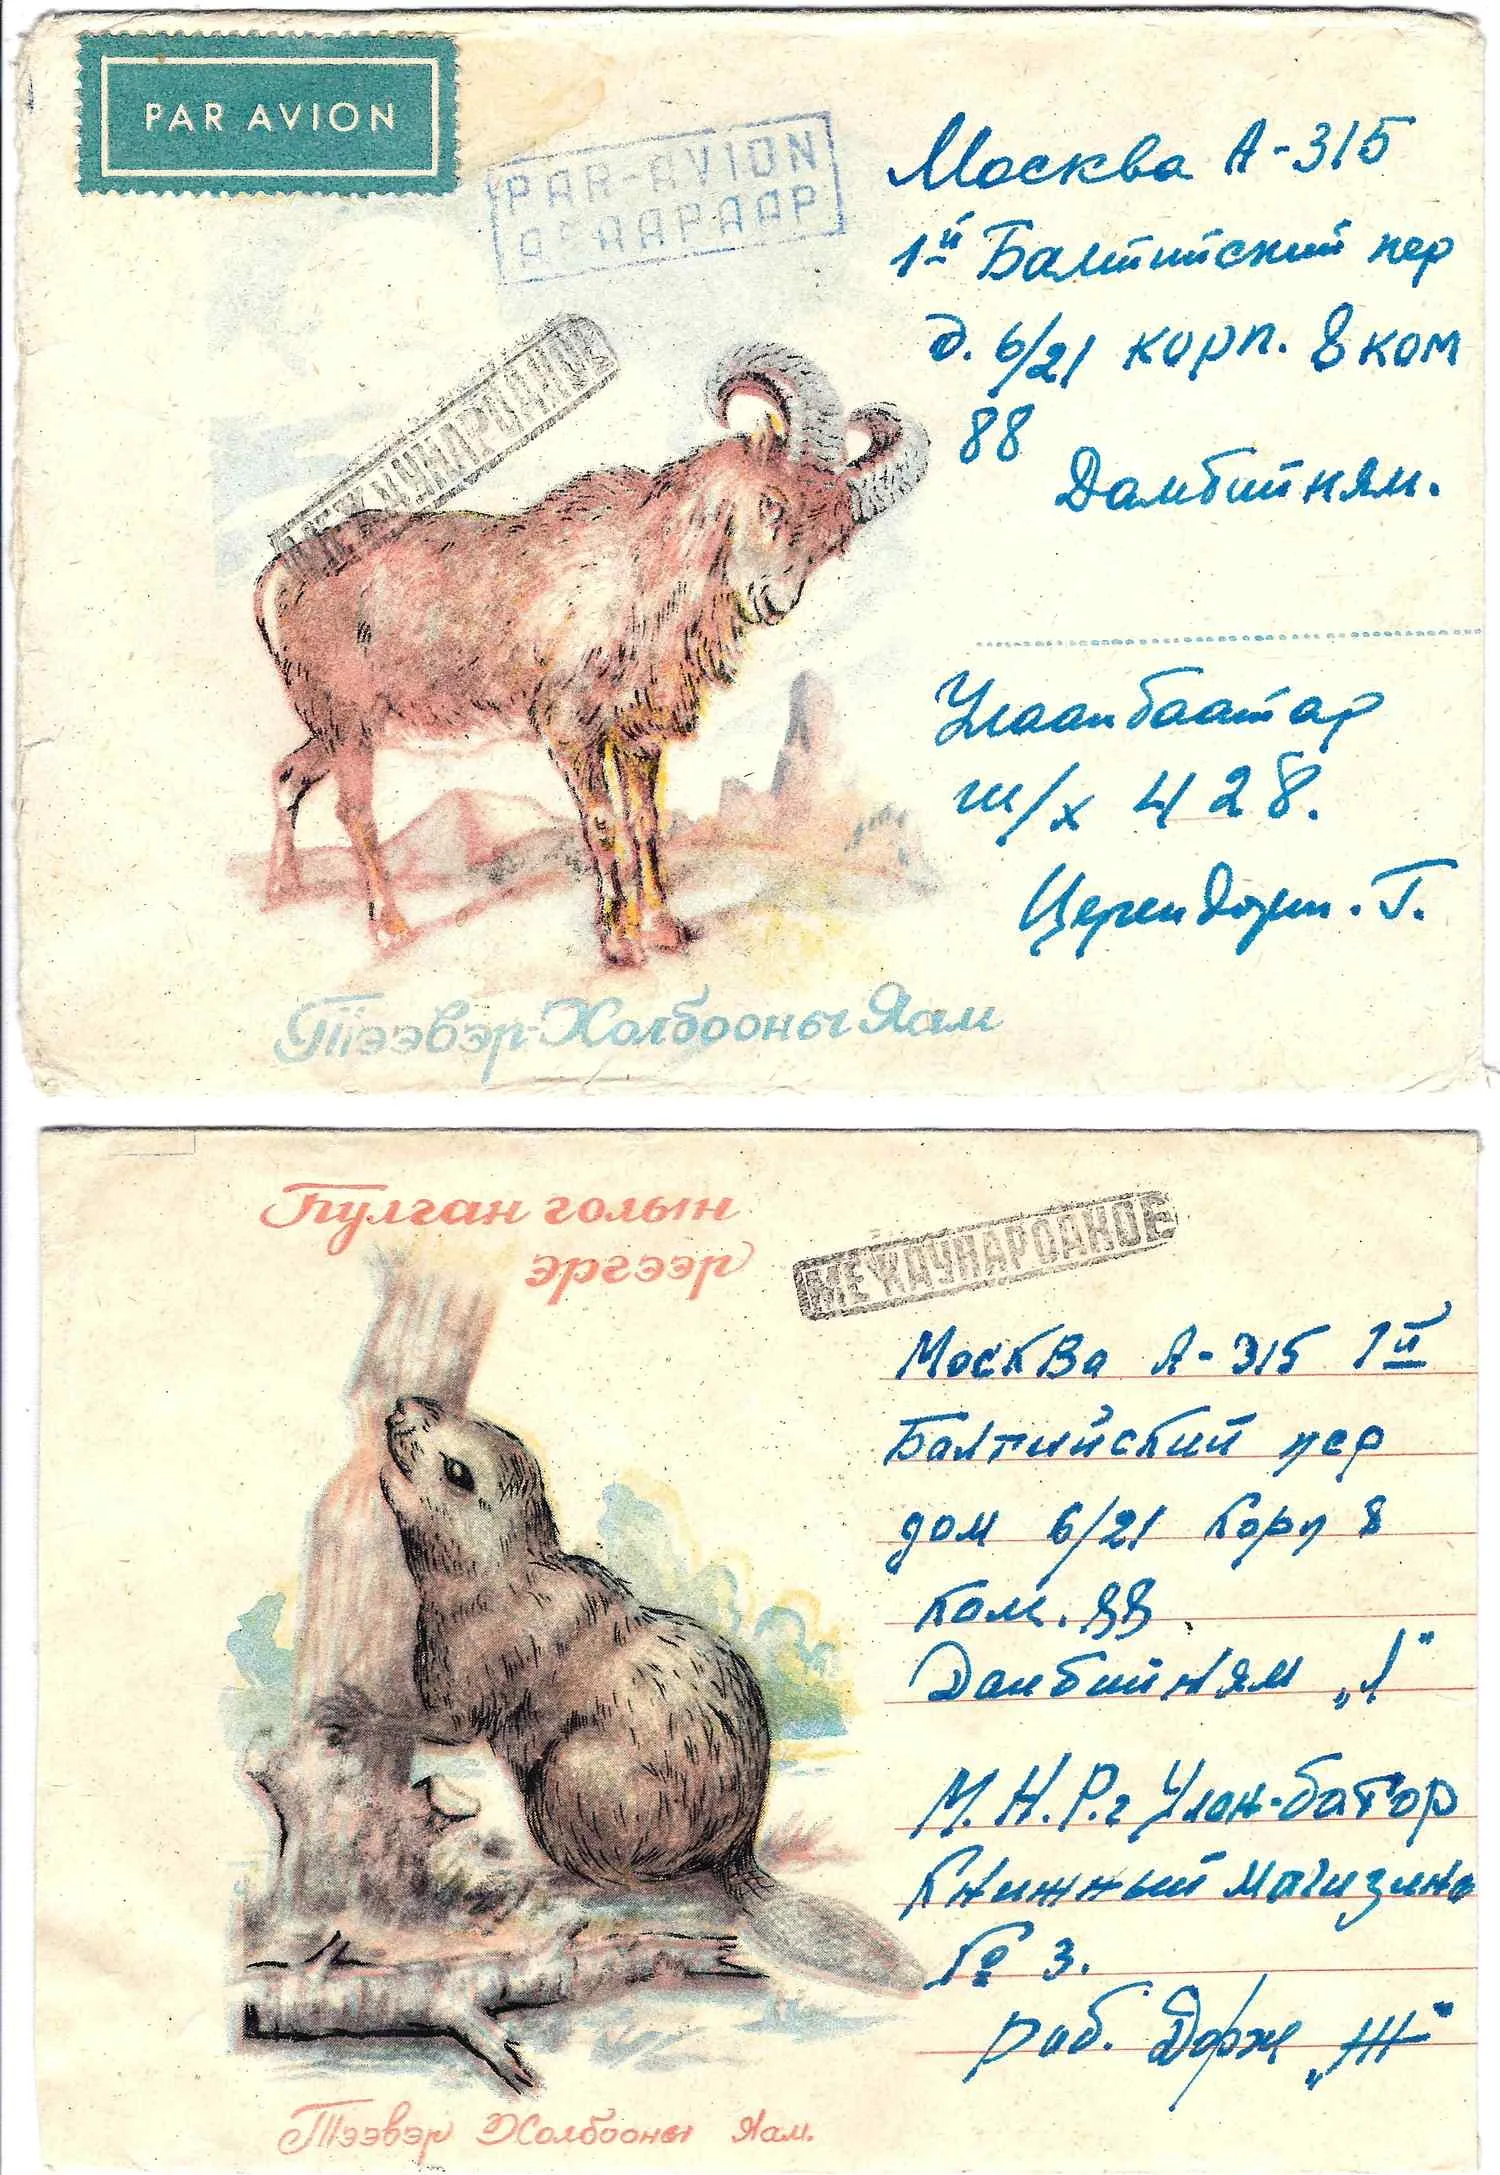 PAR AVION
PAR-AVION
АГААРААР
МЕЖДУНАРОДНОЕ
Москва А-315
1й Балтийский пер
д. 6/21 корп. 8 ком
88
Дамбийням.
Улаанбаатар
ш/х 428.
Г.
Тээвэр-Холбооны Яам
Булган голын
эргээр
МЕЖДУНАРОДНОЕ
Москва А-315 1й
Балтийский пер
дом 6/21 корп 8
ком. 88
Дамбийням „Л"
М.Н.Р. г Улан-батор
Книжный магазинь
№ 3.
раб. Дорж „Ж"
Тээвэр Холбооны Яам.